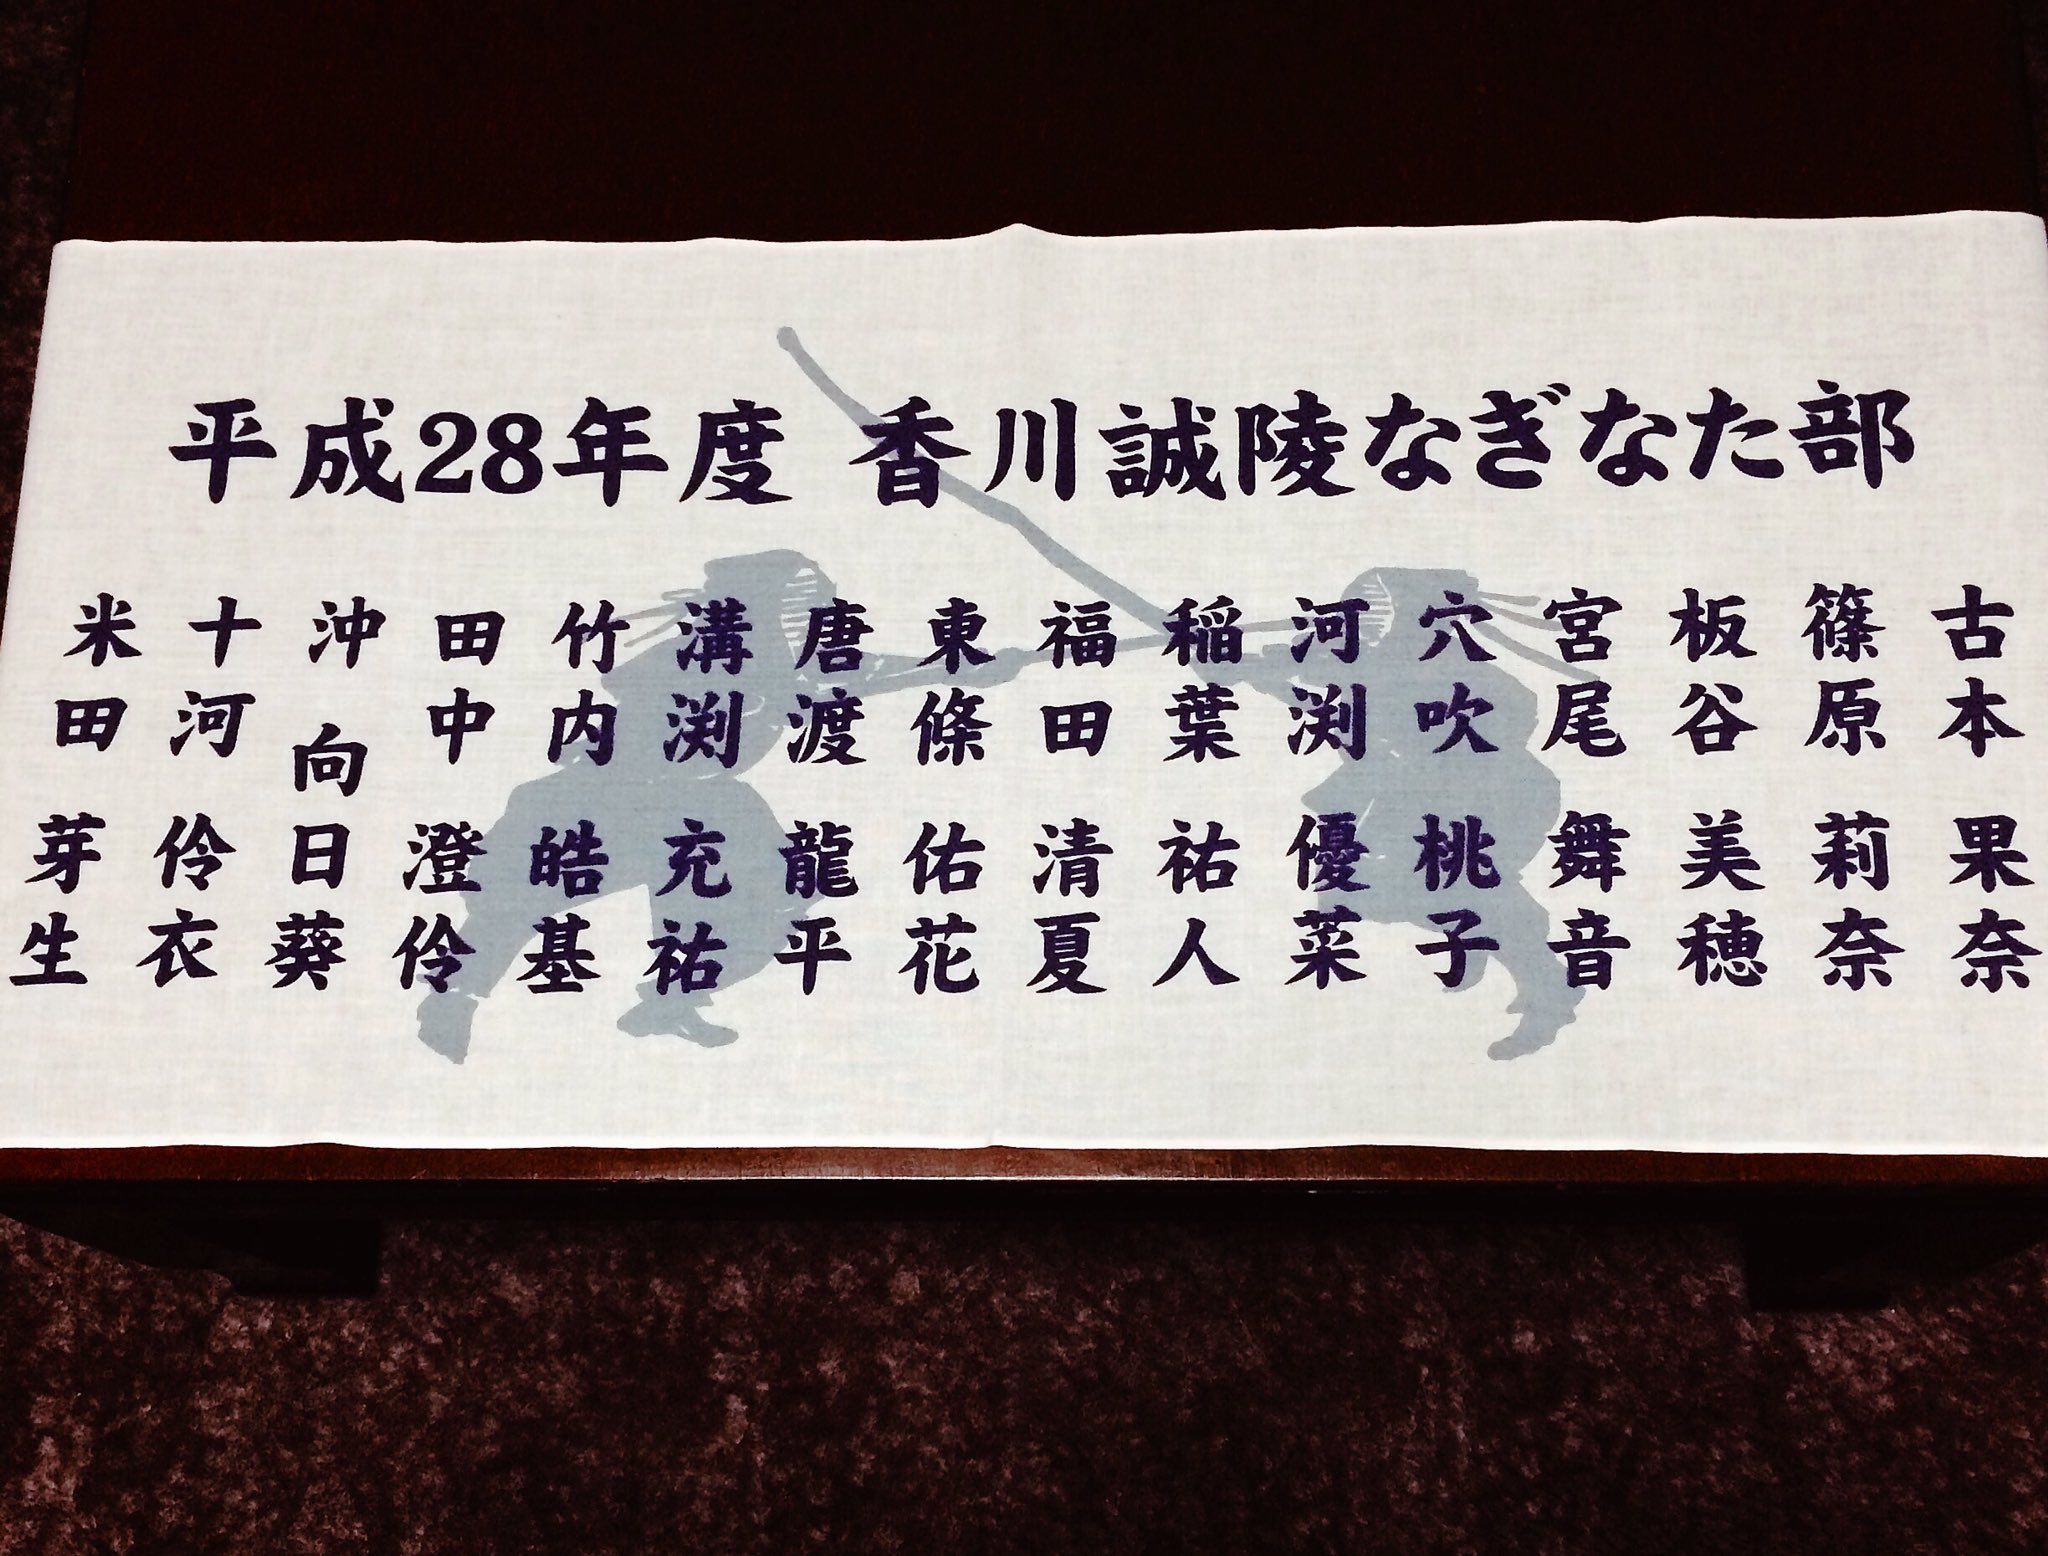 平成28年度 香川誠陵なぎなた部
古本 果奈
篠原 莉奈
板谷 美穂
宮尾 舞音
穴吹 桃子
河渕 優菜
稲葉 祐人
福田 清夏
東條 佑花
唐渡 龍平
溝渕 充祐
竹内 皓基
田中 澄伶
沖 向日葵
十河 伶衣
米田 芽生